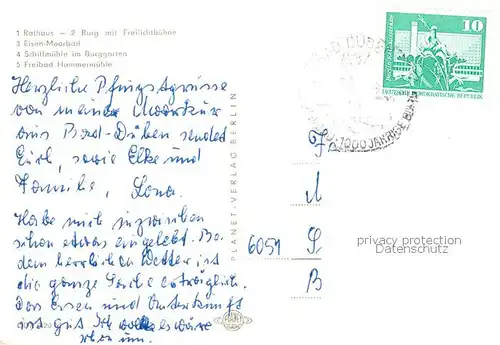 1 Rathaus – 2 Burg mit Freilichtbühne
3 Eisen-Moorbad
4 Schiffmühle im Burggarten
5 Freibad Hammermühle
Herzliche Pfingstgrüsse
von meiner Moorkur
aus Bad-Düben sendet
Euch, sowie Elke und
Familie, Lona.
Habe mich inzwischen
schon etwas eingelebt. Bei
dem herrlichen Wetter ist
die ganze Sache erträglich.
Das Essen und Unterkunft
ist gut. Ich
PLANET-VERLAG BERLIN
10
DEUTSCHE DEMOKRATISCHE REPUBLIK
BAD DÜBEN
1000 JAHRE BURG
Fa
S
B
privacy protection
Datenschutz